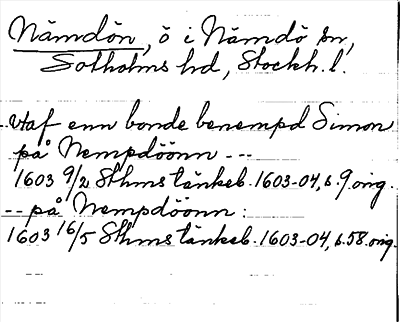 Nämdön, ö i Nämdö sn,
Sotholms hd, Stockh. l.
Utaf enn bonde benempd Simon
på Nempdöönn ---
1603 9/2 Sthms tänkeb. 1603-04, s. 9. orig.
-- på Nempdöonn :
1603 16/5 Sthms tänkeb. 1603-04, s. 58. orig.